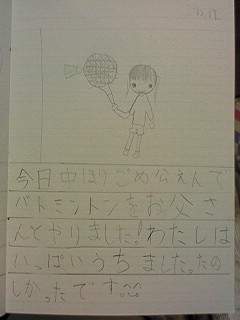 今日中ほりごめ公えんで
バトミントンをお父さ
んとやりました!わたしは
いっぱいうちました。たの
しかったです